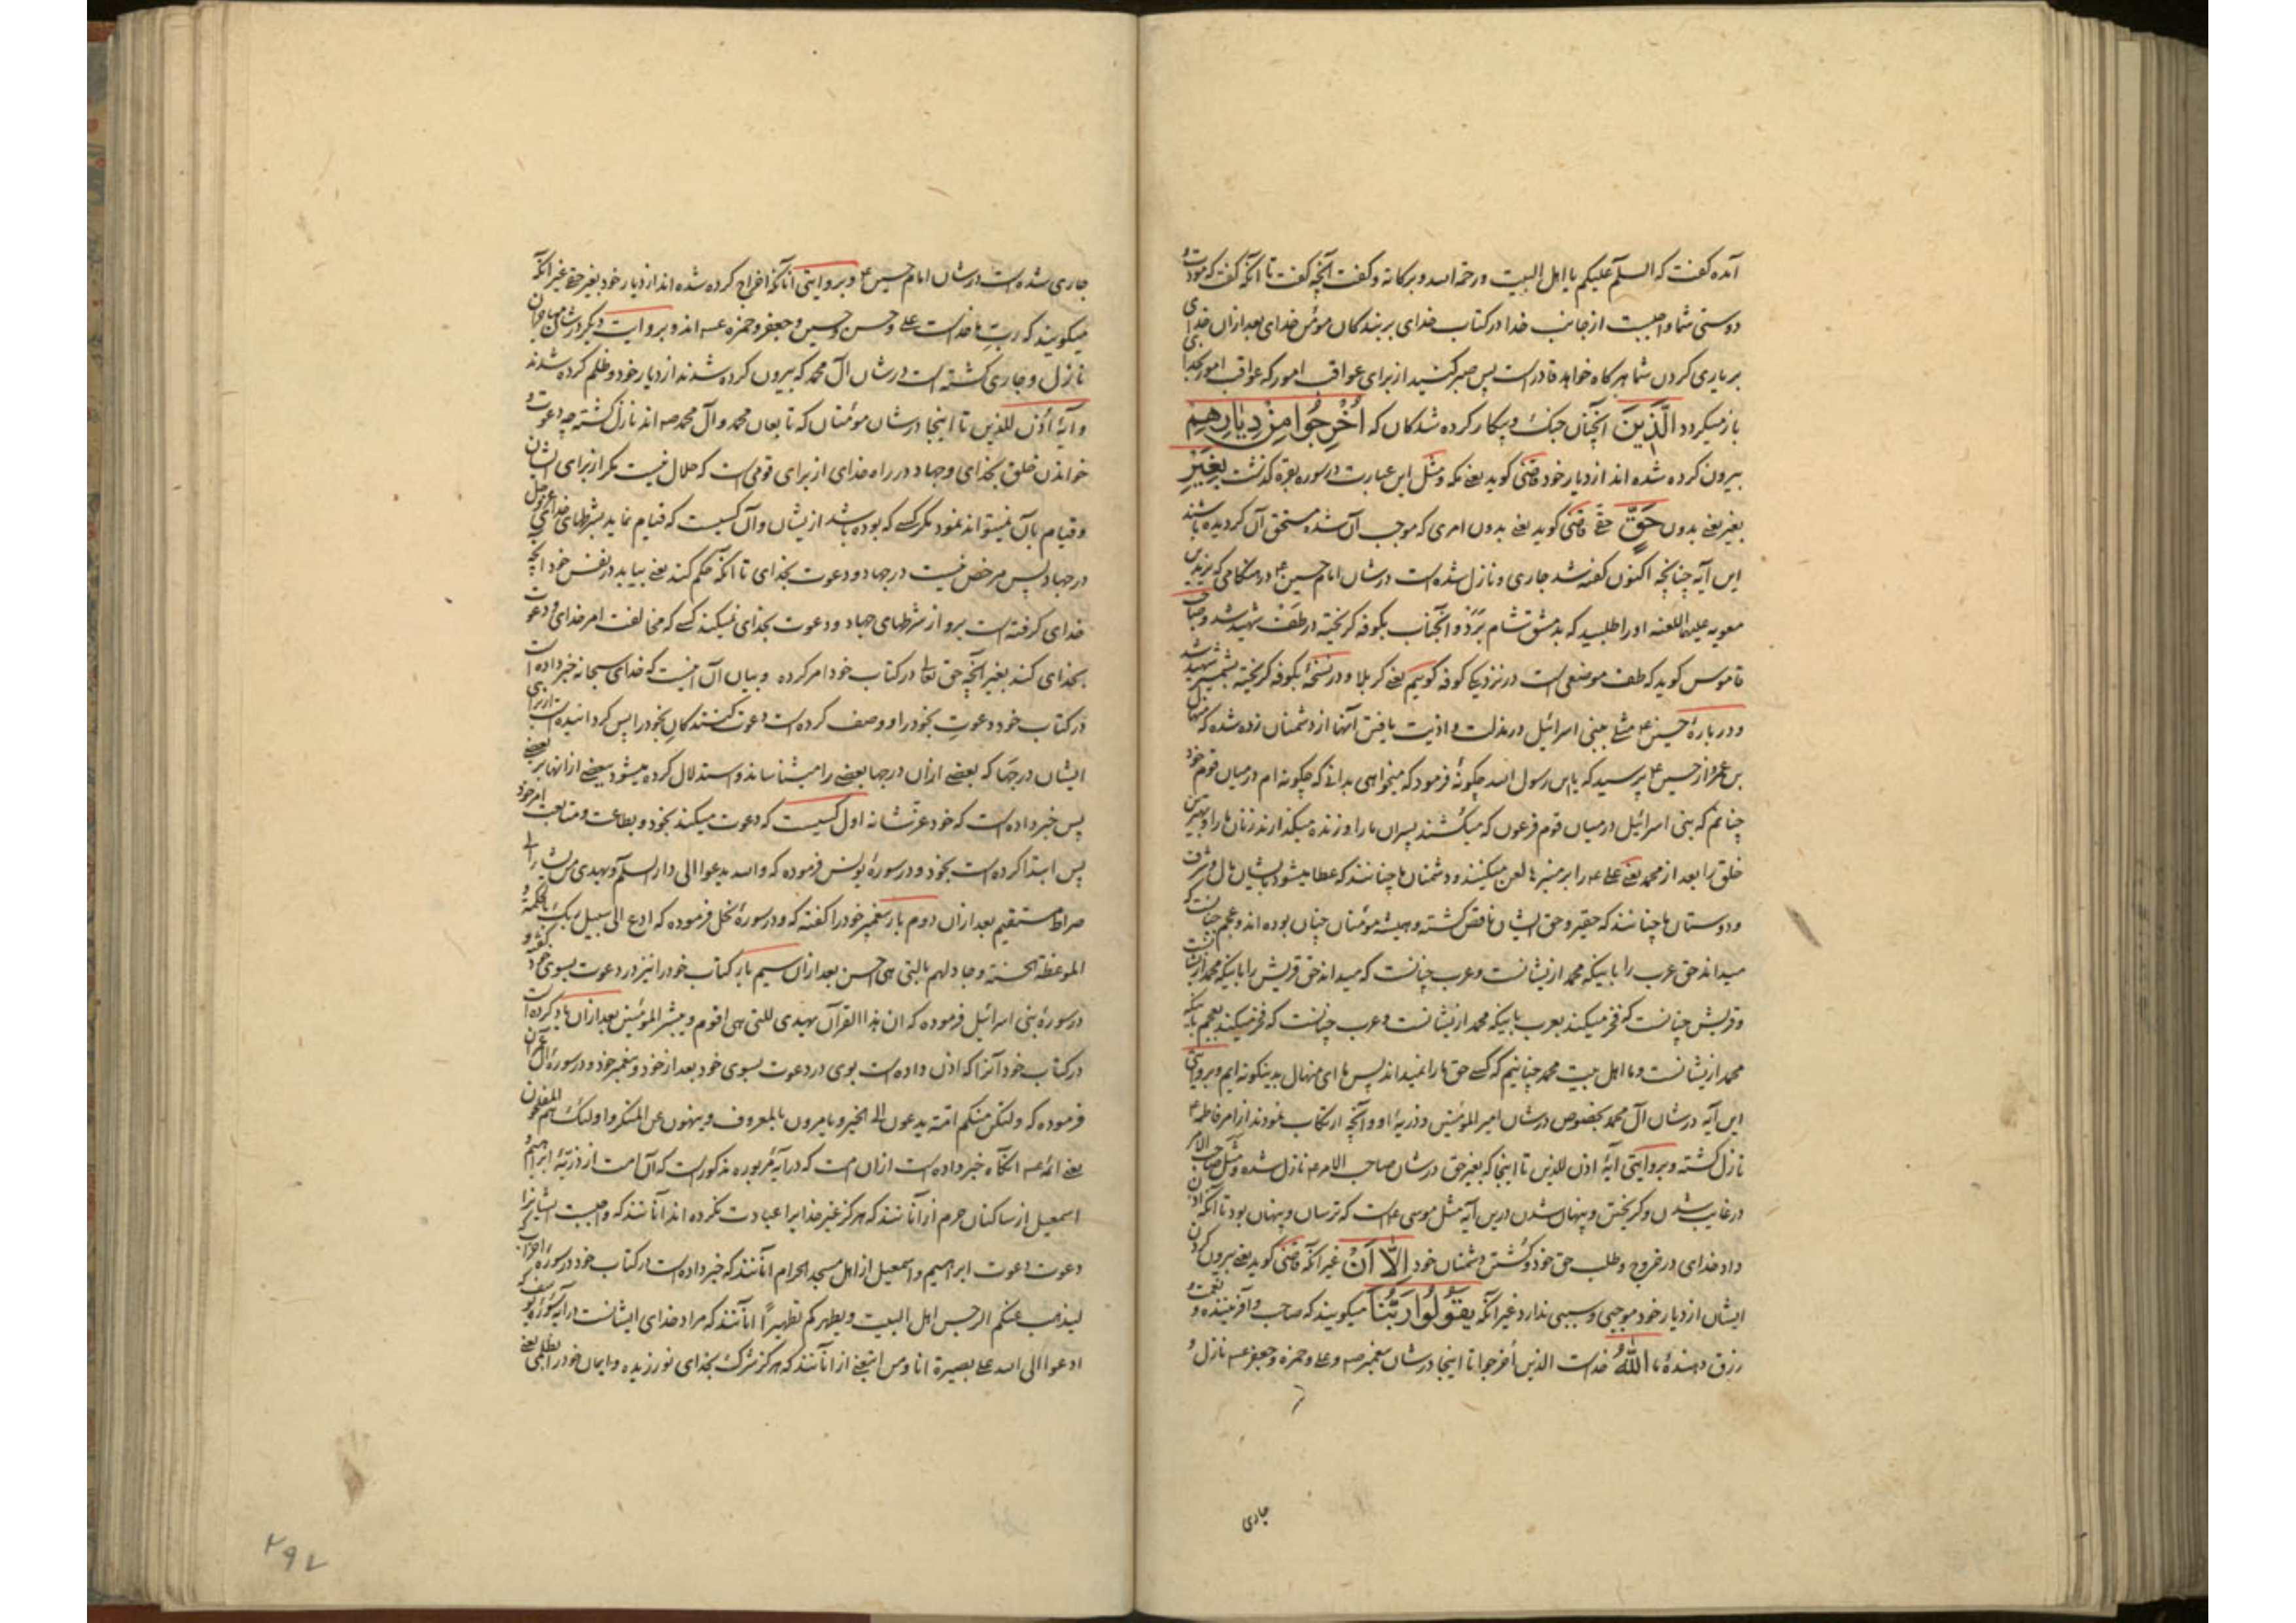 آمده کفت که السلم علیکم یا اهل البیت ورحمة الله وبرکاته وکفت آنچه کفت تا آنکه کفت که مودت و
دوستی شما واجبست از جانب خدا در کتاب خدای بر بندکان مؤمن خدای بعد ازان خدای
بر یاری کردن شما هرکاه خواهد قادر است پس صبر کنید از برای عواقب امور که عواقب امور بخدا
باز میکردد الَّذِینَ آنچنان جنک وپیکار کرده شدکان که اُخْرِجُوا مِنْ دِیَارِهِمْ
بیرون کرده شده اند از دیار خود قاضی کوید یعنی مکه ومثل این عبارت در سوره بقره کذشت بِغَیْرِ
بغیر یعنی بدون حَقٍّ حقی قاضی کوید یعنی بدون امری که موجب آن شده مستحق آن کردیده باشند
این آیه چنانچه اکنون کفته شد جاری ونازل شده است در شان امام حسین ع در هنکامی که یزید بن
معویه علیهما اللعنه او را طلبید که بدمشق شام برد وآنجناب بکوفه کریخته در طف شهید شد وصاحب
قاموس کوید که طف موضعی است در نزدیک کوفه کوییم یعنی کربلا ودر نسخهٔ بکوفه کریخته شهید شد
ودر بارهٔ حسین ع مثلی ببنی اسرائیل در مذلت واذیت یافتن آنها از دشمنان زده شده که منهال
بن عمرو از حسین ع پرسید که یابن رسول الله چکونهٔ فرمود که میخواهی بدانی که چکونه ام در میان قوم خود
چنانم که بنی اسرائیل در میان قوم فرعون که میکشند پسران ما را وزنده میکذارند زنان ما را وبهترین
خلق را بعد از محمد یعنی علی ع را بر منبرها لعن میکنند ودشمنان ما چنانند که عطا میشود بایشان مال وشرف
ودوستان ما چنانند که حقیر وحق ایشان ناقص کشته وهمیشه مؤمنان چنان بوده اند وعجم چنانست که
میداند حق عرب را باینکه محمد ازیشانست وعرب چنانست که میداند حق قریش را باینکه محمد ازیشانست
وقریش چنانست که فخر میکند بعرب باینکه محمد ازیشانست وعرب چنانست که فخر میکند بعجم باینکه
محمد ازیشانست وما اهل بیت محمد چنانیم که کسی حق ما را نمیداند پس ما ای منهال بدینکونه ایم وبروایتی
این آیه در شان آل محمد بخصوص در شان امیر المؤمنین وذریهٔ او وآنچه ارتکاب نمودند از امر فاطمه ع
نازل کشته وبروایتی آیهٔ اذن للذین تا اینجا که بغیر حق در شان صاحب الامر ع نازل شده ومثل صاحب الامر
در غایب شدن وکریختن وپنهان شدن درین آیه مثل موسی ع است که ترسان وپنهان بود تا آنکه اذن
داد خدای در خروج وطلب حق خود وکشتن دشمنان خود اِلَّا اَنْ غیر آنکه قاضی کوید یعنی بیرون کردن
ایشان از دیار خود موجبی وسببی ندارد غیر آنکه یَقُولُوا رَبُّنَا میکویند که صاحب وآفریننده و
رزق دهندهٔ ما اللهُ خداست الذین اخرجوا تا اینجا در شان پیغمبر ص وعلی وحمزه وجعفر ع نازل و
جاری
جاری شده است در شان امام حسین ع وبروایتی آنانکه اخراج کرده شده اند از دیار خود بغیر حق غیر آنکه
میکویند که رب ما خداست علی وحسن وحسین وجعفر وحمزه ع اند وبروایت دیکر در شان مهاجران
نازل وجاری کشته است در شان آل محمد که بیرون کرده شدند از دیار خود وظلم کرده شدند
وآیهٔ اذن للذین تا اینجا در شان مؤمنان که تابعان محمد وآل محمد ص اند نازل کشته چه دعوت و
خواندن خلق بخدای وجهاد در راه خدای از برای قومی است که حلال نیست مکر از برای ایشان
وقیام بآن نمیتواند نمود مکر کسی که بوده باشد ازیشان وآن کسیست که قیام نماید بشرطهای خدای عزوجل
در جهاد پس مرخص نیست در جهاد ودعوت بخدای تا آنکه حکم کند یعنی بیابد در نفس خود آنچه
خدای کرفته است برو از شرطهای جهاد ودعوت بخدای نمیکند کسی که مخالفت امر خدای ودعوت
بخدای کند بغیر آنچه حق تعالی در کتاب خود امر کرده وبیان آن اینست که خدای سبحانه خبر داده است
در کتاب خود دعوت بخود را ووصف کرده است دعوت کنندکان بخود را پس کردانیده است از برای
ایشان درجها که بعضی ازان درجها بعضی را میشناساند واستدلال کرده میشود ببعضی از آنها بر بعضی
پس خبر داده است که خود عز شانه اول کسیست که دعوت میکند بخود وبطاعت ومتابعت امر خود
پس ابتدا کرده است بخود ودر سورهٔ یونس فرموده که والله یدعوا الی دار السلم ویهدی من یشاء الی
صراط مستقیم بعد ازان دوم بار پیغمبر خود را کفته که ودر سورهٔ نحل فرموده که ادع الی سبیل ربک بالحکمة و
الموعظة الحسنة وجادلهم بالتی هی احسن بعد ازان سیم بار کتاب خود را نیز در دعوت بسوی خود کفته و
در سورهٔ بنی اسرائیل فرموده که ان هذا القرآن یهدی للتی هی اقوم ویبشر المؤمنین بعد ازان یاد کرده است
در کتاب خود آنرا که اذن داده است بوی در دعوت بسوی خود بعد از خود وپیغمبر خود ودر سورهٔ آل عمران
فرموده که ولتکن منکم امة یدعون الی الخیر ویامرون بالمعروف وینهون عن المنکر واولئک هم المفلحون
یعنی ائمه ع آنکاه خبر داده است ازان امت که در آیهٔ مزبوره مذکور است که آن امت از ذریهٔ ابراهیم و
اسمعیل از ساکنان حرم از آنانند که هرکز غیر خدا را عبادت نکرده اند آنانند که واجبست ایشانرا
دعوت دعوت ابراهیم واسمعیل از اهل مسجد الحرام آنانند که خبر داده است در کتاب خود در سورهٔ احزاب که
لیذهب عنکم الرجس اهل البیت ویطهرکم تطهیرًا آنانند که مراد خدای ایشانست در آیهٔ سورهٔ یوسف که
ادعوا الی الله علی بصیرة انا ومن اتبعنی از آنانند که هرکز شرک بخدای نورزیده وایمان خود را بظلمی یعنی
۲۹۷